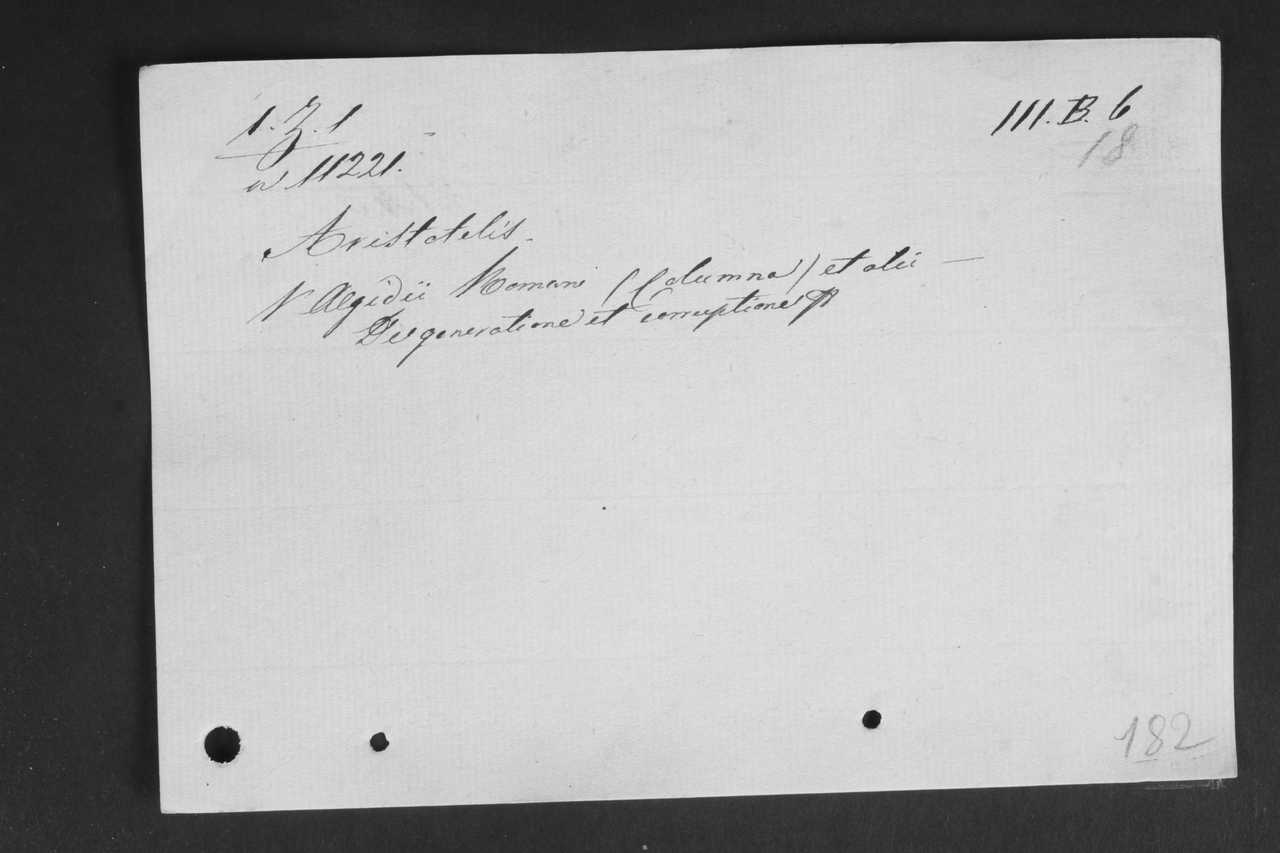 1.Z.1
III.B.6
18
n 11221.
Aristotelis.
V Aegidii Romani (Columna) et alii —
De generatione et corruptione
182